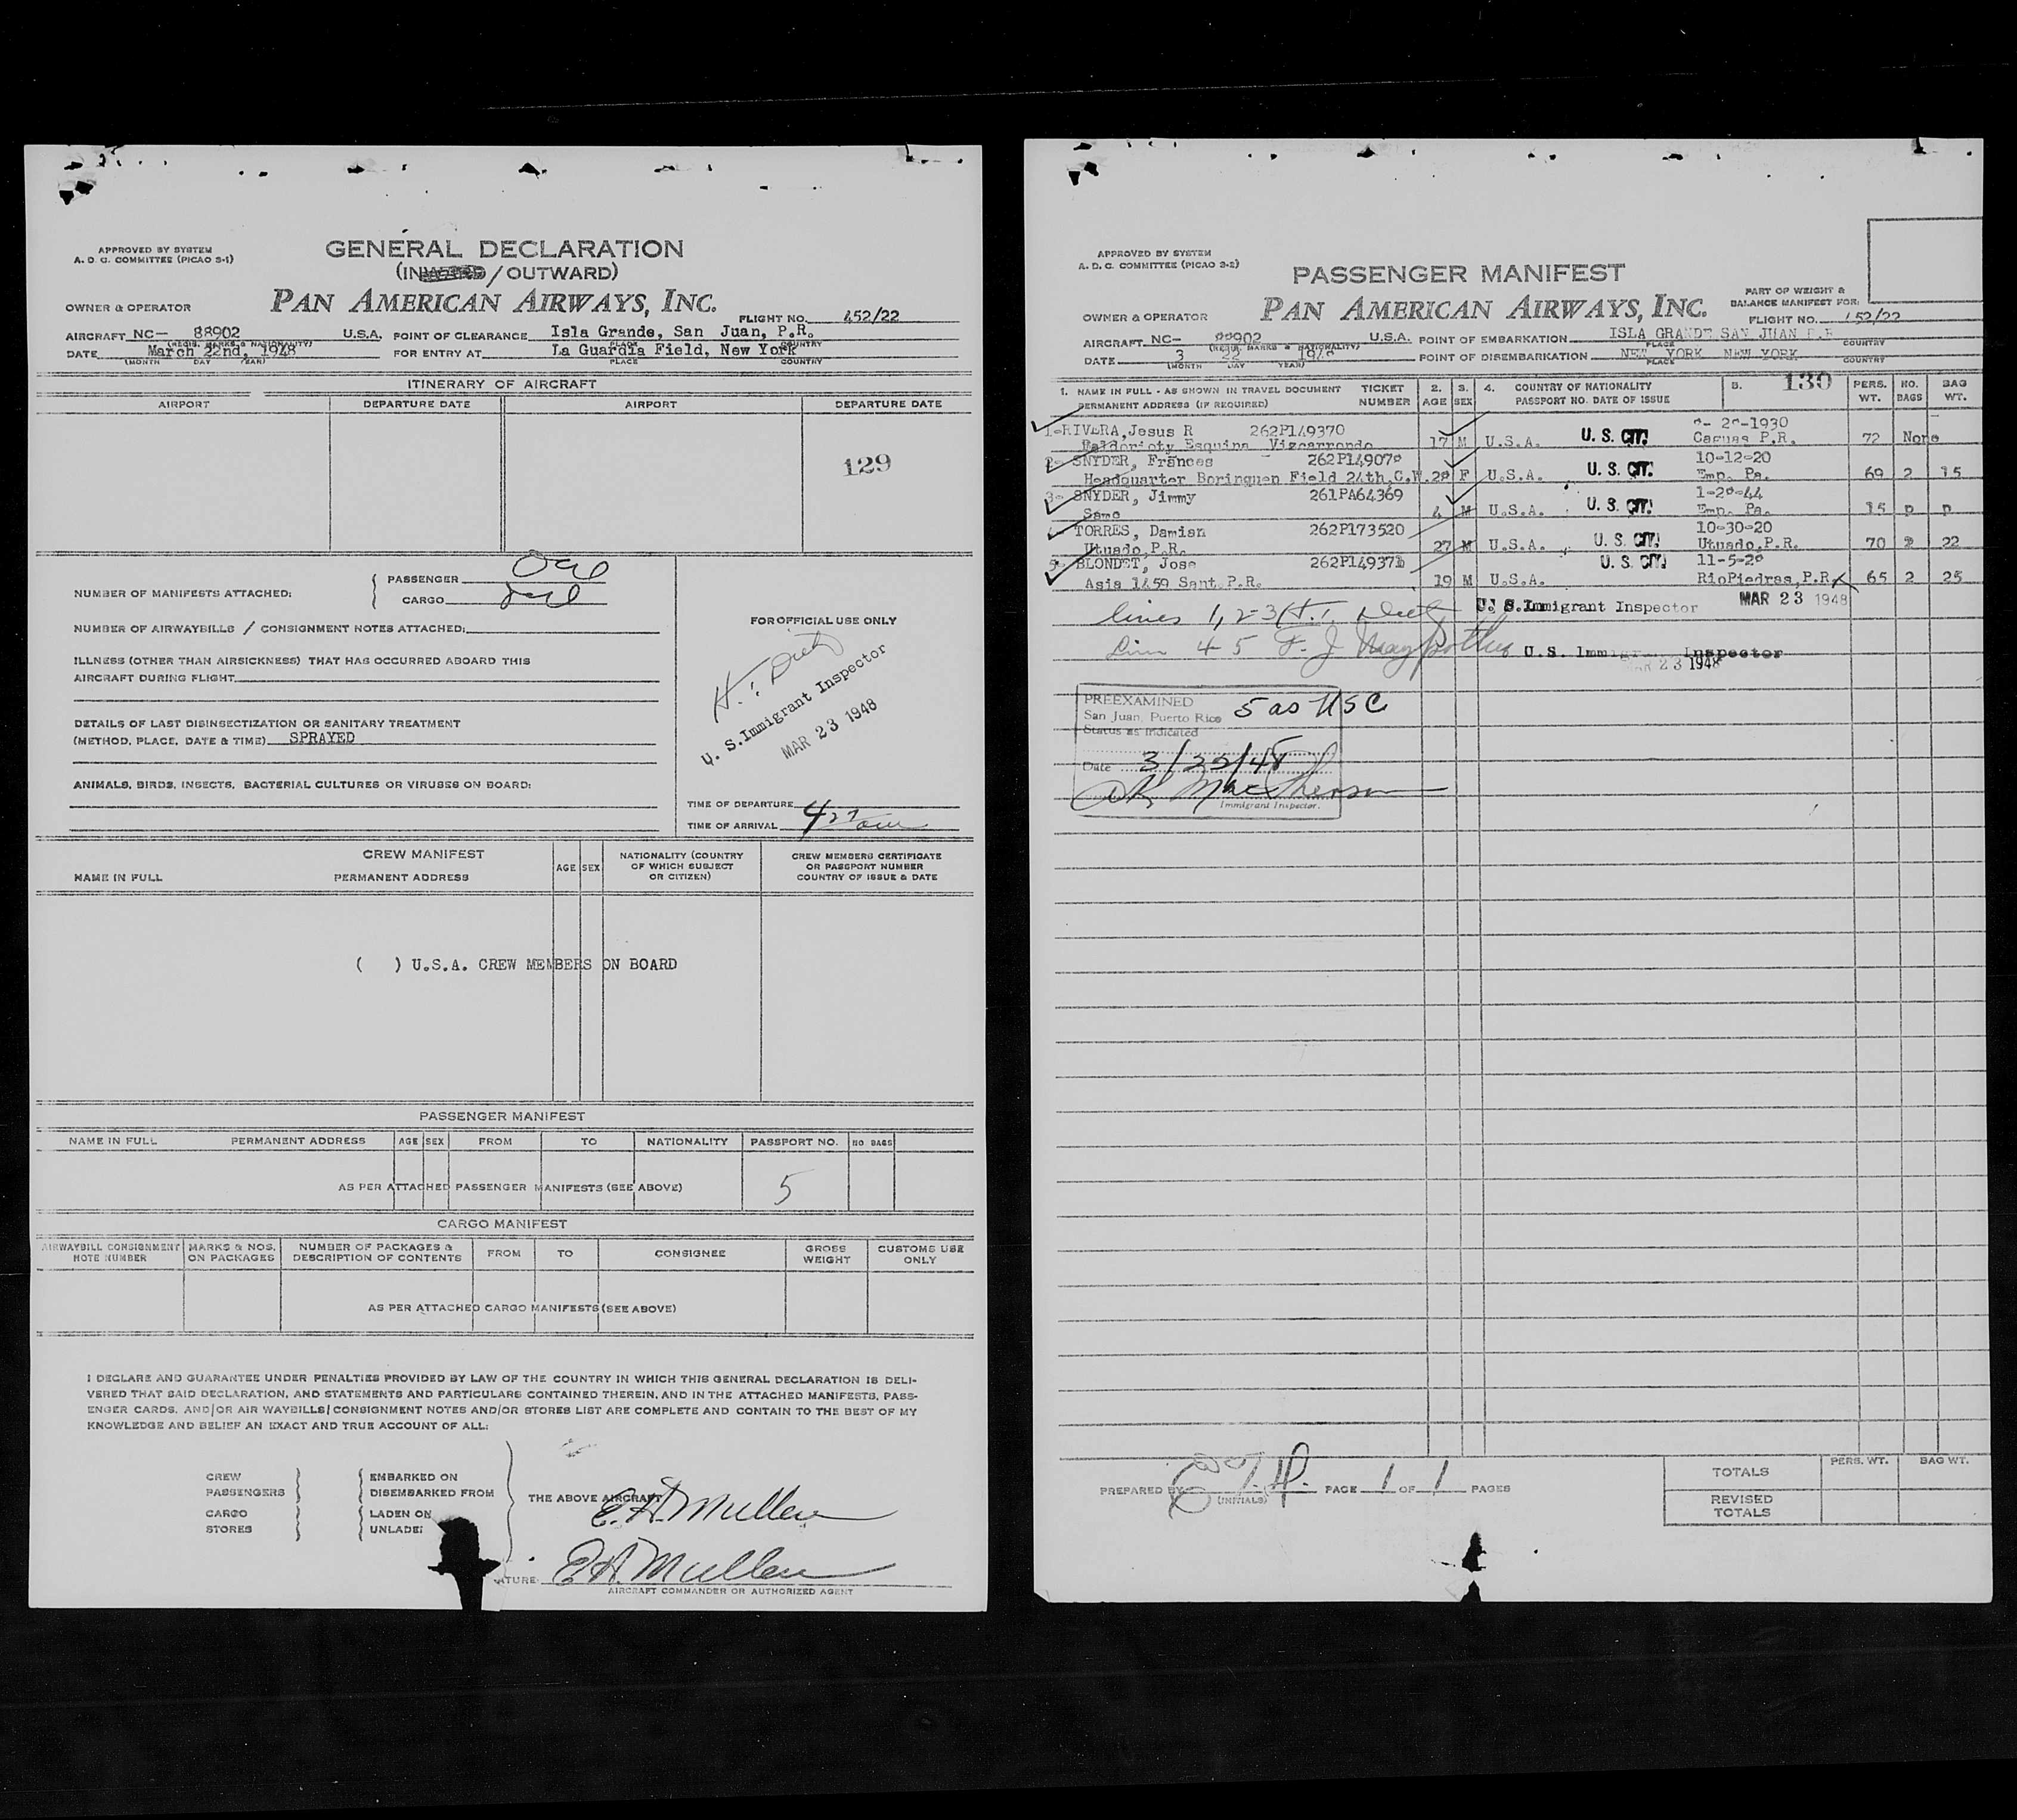 APPROVED BY SYSTEM
A. D. C. COMMITTEE (PICAO 3-1)
GENERAL DECLARATION
(INWARD/OUTWARD)
OWNER & OPERATOR
PAN AMERICAN AIRWAYS, INC.
FLIGHT NO. 452/22
AIRCRAFT NC- 88902 U.S.A. POINT OF CLEARANCE Isla Grande, San Juan, P.R.
(REGIS. MARKS & NATIONALITY) PLACE COUNTRY
DATE March 22nd, 1948 FOR ENTRY AT La Guardia Field, New York
(MONTH DAY YEAR) PLACE COUNTRY
ITINERARY OF AIRCRAFT
AIRPORT DEPARTURE DATE AIRPORT DEPARTURE DATE
129
NUMBER OF MANIFESTS ATTACHED:
PASSENGER One
CARGO
NUMBER OF AIRWAYBILLS / CONSIGNMENT NOTES ATTACHED:
ILLNESS (OTHER THAN AIRSICKNESS) THAT HAS OCCURRED ABOARD THIS
AIRCRAFT DURING FLIGHT
DETAILS OF LAST DISINSECTIZATION OR SANITARY TREATMENT
(METHOD, PLACE, DATE & TIME) SPRAYED
ANIMALS, BIRDS, INSECTS, BACTERIAL CULTURES OR VIRUSES ON BOARD:
FOR OFFICIAL USE ONLY
U. S. Immigrant Inspector
MAR 23 1948
TIME OF DEPARTURE
TIME OF ARRIVAL 4 27 am
CREW MANIFEST
NAME IN FULL PERMANENT ADDRESS AGE SEX
NATIONALITY (COUNTRY
OF WHICH SUBJECT
OR CITIZEN)
CREW MEMBERS CERTIFICATE
OR PASSPORT NUMBER
COUNTRY OF ISSUE & DATE
( ) U.S.A. CREW MEMBERS ON BOARD
PASSENGER MANIFEST
NAME IN FULL PERMANENT ADDRESS AGE SEX FROM TO NATIONALITY PASSPORT NO. NO BAGS
AS PER ATTACHED PASSENGER MANIFESTS (SEE ABOVE) 5
CARGO MANIFEST
AIRWAYBILL CONSIGNMENT
NOTE NUMBER
MARKS & NOS.
ON PACKAGES
NUMBER OF PACKAGES &
DESCRIPTION OF CONTENTS
FROM TO CONSIGNEE
GROSS
WEIGHT
CUSTOMS USE
ONLY
AS PER ATTACHED CARGO MANIFESTS (SEE ABOVE)
I DECLARE AND GUARANTEE UNDER PENALTIES PROVIDED BY LAW OF THE COUNTRY IN WHICH THIS GENERAL DECLARATION IS DELI-
VERED THAT SAID DECLARATION, AND STATEMENTS AND PARTICULARS CONTAINED THEREIN, AND IN THE ATTACHED MANIFESTS, PASS-
ENGER CARDS, AND/OR AIR WAYBILLS/CONSIGNMENT NOTES AND/OR STORES LIST ARE COMPLETE AND CONTAIN TO THE BEST OF MY
KNOWLEDGE AND BELIEF AN EXACT AND TRUE ACCOUNT OF ALL:
CREW EMBARKED ON
PASSENGERS DISEMBARKED FROM
CARGO LADEN ON
STORES UNLADE
THE ABOVE AIRCRAFT
E. H. Mullen
ATURE: E. H. Mullen
AIRCRAFT COMMANDER OR AUTHORIZED AGENT
APPROVED BY SYSTEM
A. D. C. COMMITTEE (PICAO 3-2)
PASSENGER MANIFEST
PART OF WEIGHT &
BALANCE MANIFEST FOR:
OWNER & OPERATOR
PAN AMERICAN AIRWAYS, INC.
FLIGHT NO. 452/22
AIRCRAFT NC- 88902 U.S.A. POINT OF EMBARKATION ISLA GRANDE SAN JUAN P.R
(REGIS. MARKS & NATIONALITY) PLACE COUNTRY
DATE 3 22 1948 POINT OF DISEMBARKATION NEW YORK NEW YORK
(MONTH DAY YEAR) PLACE COUNTRY
1. NAME IN FULL - AS SHOWN IN TRAVEL DOCUMENT
PERMANENT ADDRESS (IF REQUIRED)
TICKET
NUMBER
2. AGE
3. SEX
4. COUNTRY OF NATIONALITY
PASSPORT NO. DATE OF ISSUE
5. 130
PERS. WT.
NO. BAGS
BAG WT.
1-RIVERA, Jesus R 262P149370
Baldorioty Esquina Vizcarrondo 17 M U.S.A. U. S. CIT. Caguas P.R. 72 None
2- SNYDER, Frances 262P149078 10-12-20
Headquarter Borinquen Field 24th.C.W. 28 F U.S.A. U. S. CIT. Emp. Pa. 69 2 15
3- SNYDER, Jimmy 261PA64369 1-28-44
Same 4 M U.S.A. U. S. CIT. Emp. Pa. 15 p p
4- TORRES, Damian 262P173520 10-30-20
Utuado, P.R. 27 M U.S.A. U. S. CIT. Utuado, P.R. 70 2 22
5- BLONDET, Jose 262P149371 U. S. CIT. 11-5-28
Asia 1459 Sant. P.R. 19 M U.S.A. RioPiedras, P.R. 65 2 25
lines 1, 2-3 U. S. Immigrant Inspector MAR 23 1948
Line 4 5 F. J. U. S. Immigr Inspector
MAR 23 1948
PREEXAMINED
San Juan, Puerto Rico 5 as USC
Status as indicated
Date 3/22/48
Immigrant Inspector.
PREPARED BY
(INITIALS)
PAGE 1 OF 1 PAGES
PERS. WT. BAG WT.
TOTALS
REVISED
TOTALS